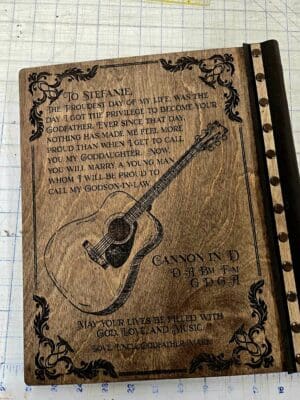 To Stefanie
The proudest day of my life, was the
day I got the privilege to become your
Godfather. Ever since that day,
nothing has made me feel more
proud than when I get to call
you my Goddaughter. Now,
you will marry a young man
whom I will be proud to
call my Godson-in-law.
Cannon in D
D A Bm F#m
G D G A
May your lives be filled with
God, Love, and Music.
Love, Uncle/Godfather